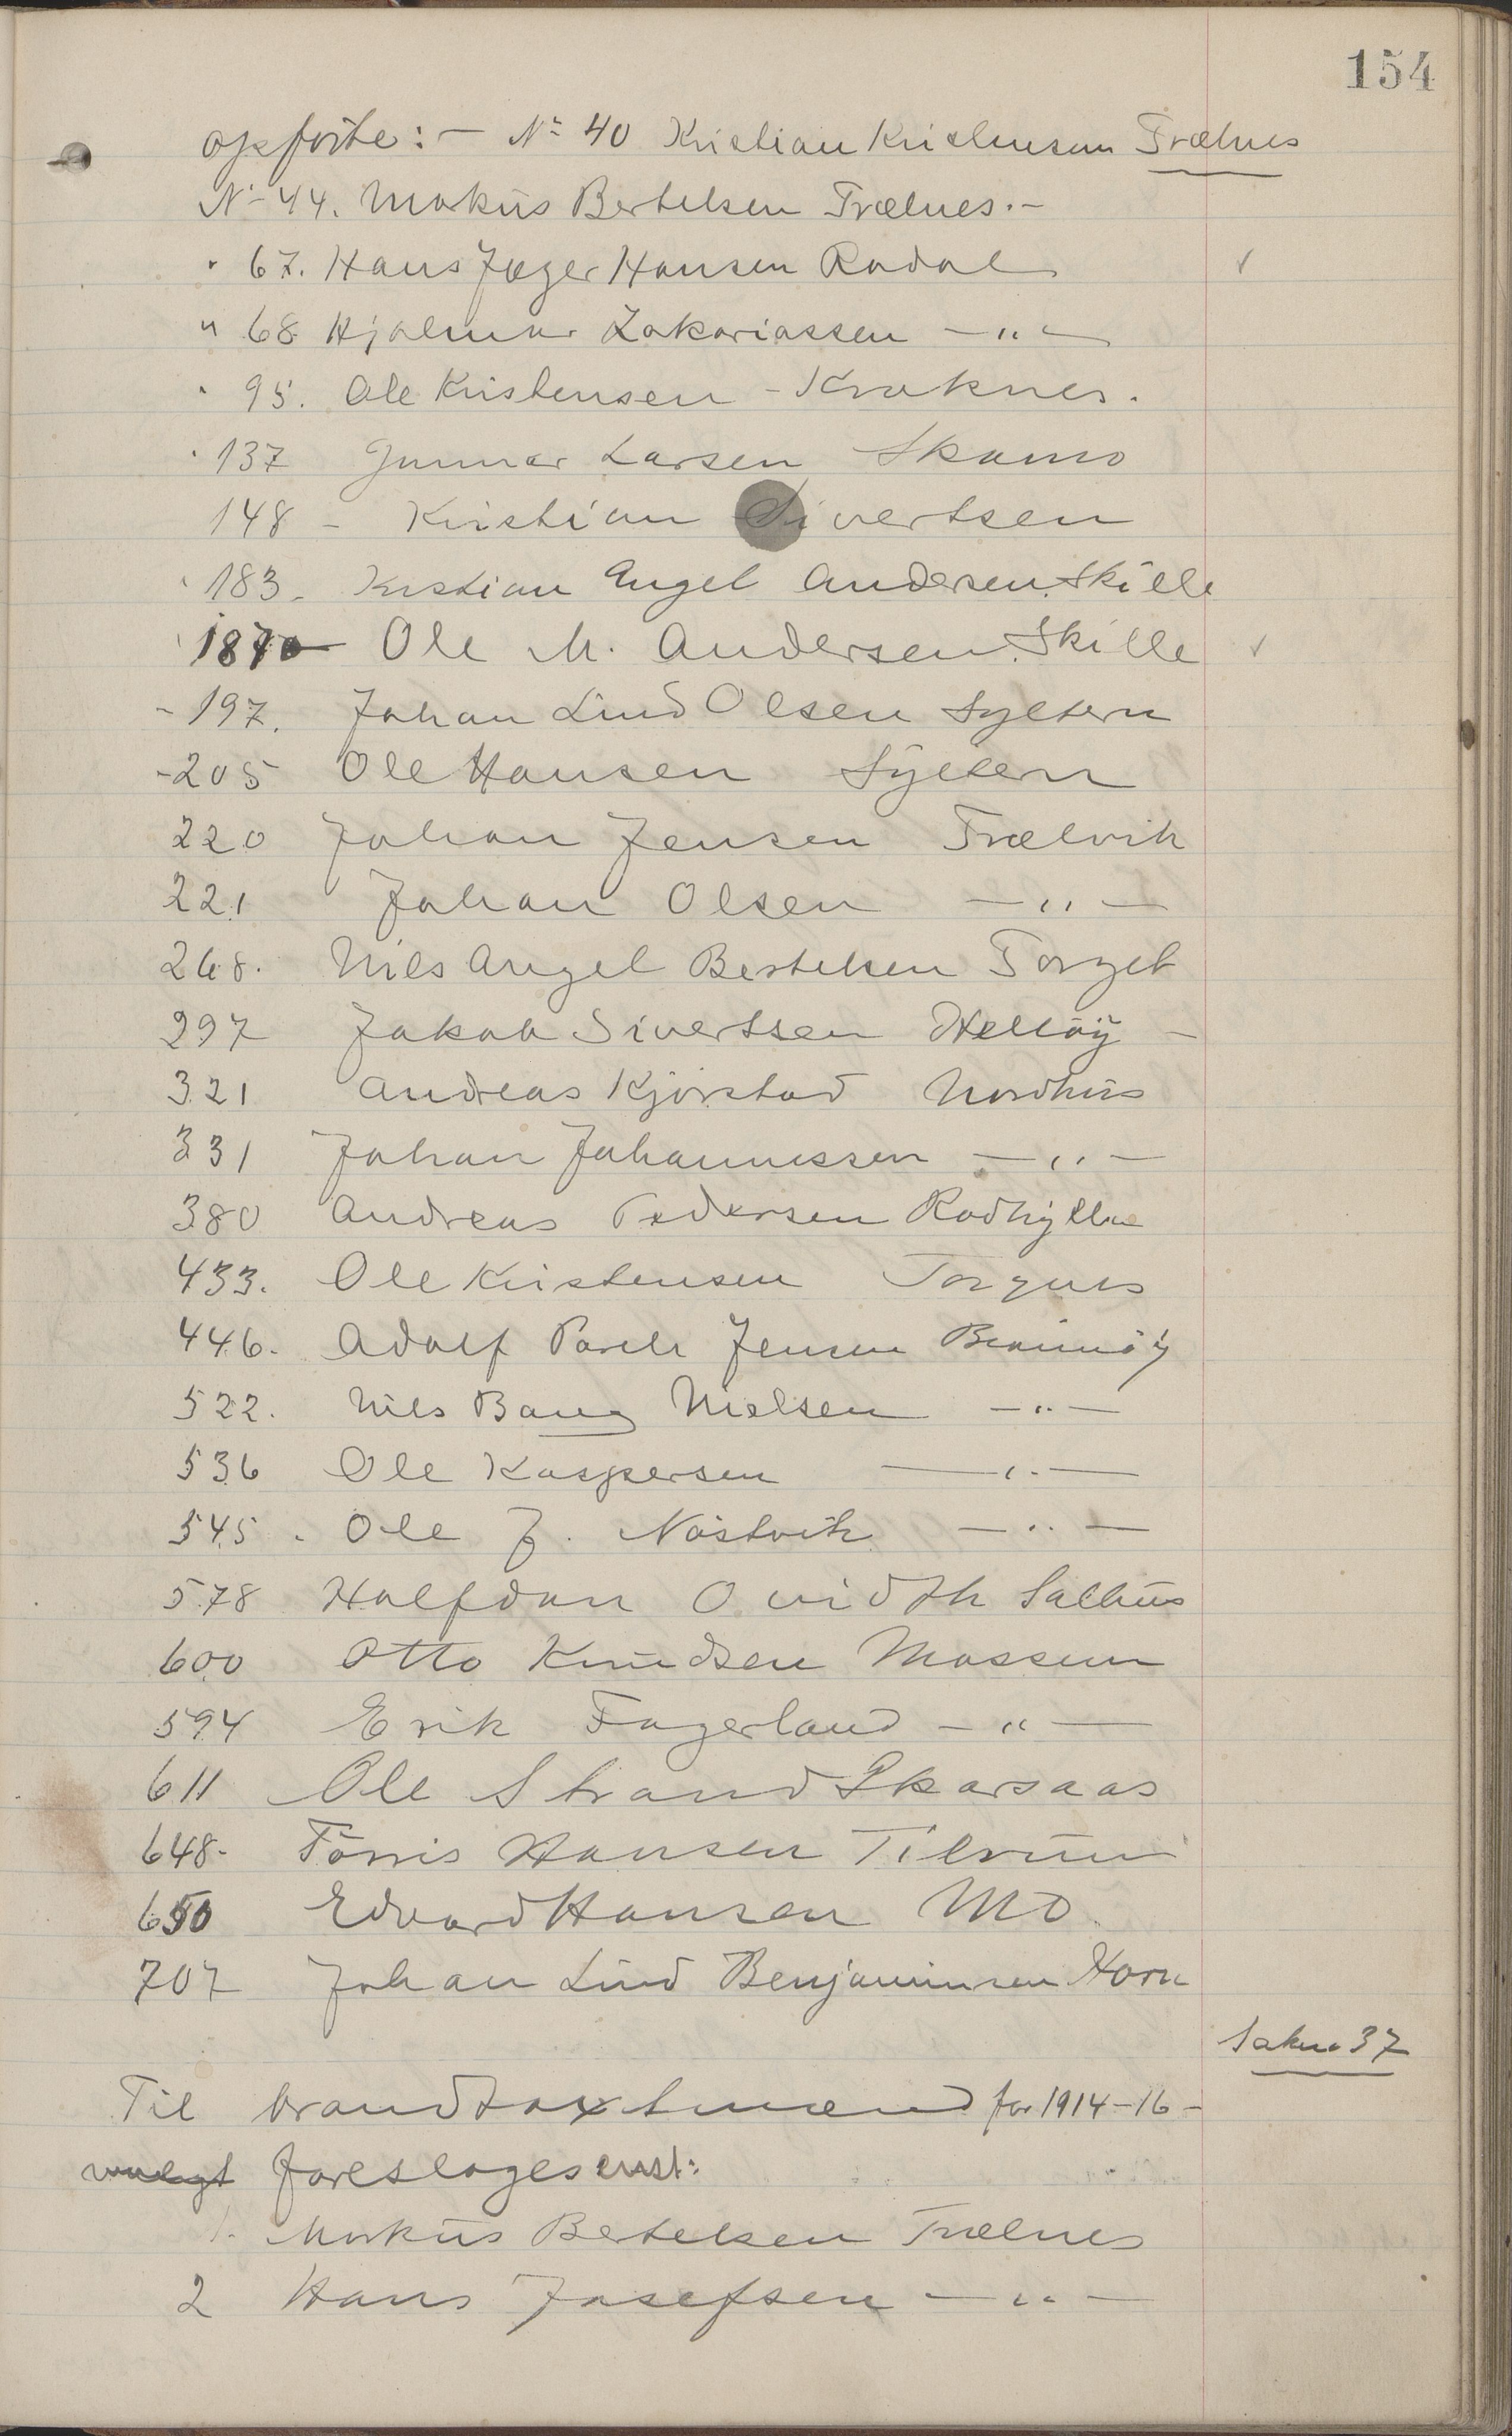 154
opførte: - No 40 Kristian Kristensen Trælnes
No 44. Markus Bertelsen Trælnes. -
" 67. Hans Jæger Hansen Rodal
" 68 Hjalmar Zakariassen - " -
" 95. Ole Kristensen - Kroknes.
" 137 Gunnar Larsen Skomo
148 - Kristian Sivertsen
" 183. Kristian Angel Andersen. Skille
Ole M. Andersen. Skille
- 197. Johan Lind Olsen Syltern
- 205 Ole Hansen Syltern
220 Johan Jensen Trælvik
221 Johan Olsen - " -
268. Nils Angel Bertelsen Torget
297 Jakob Sivertsen Helløy -
321 Andreas Kjørstad Nordhus
331 Johan Johannessen - " -
380 Andreas Pedersen Rodhylla
433. Ole Kristensen Torgnes
446. Adolf Parelr Jensen Brønnøy
522. Nils Bang Nielsen - " -
536 Ole Kaspersen - " -
545. Ole J. Nøstvik - " -
578 Halfdan Qvidth Salhus
600 Otto Knudsen Mossem
594 Erik Fagerland - " -
611 Ole Strand Skarsaas
648. Tørris Hansen Tilrum
650 Edvard Hansen Mo.
707 Johan Lind Benjaminsen Horn
Sak no 37
Til brandtaxtmænd for 1914-16 -
valgt foreslages enst:
1. Markus Betelsen Trælnes
2 Hans Josefsen - " -